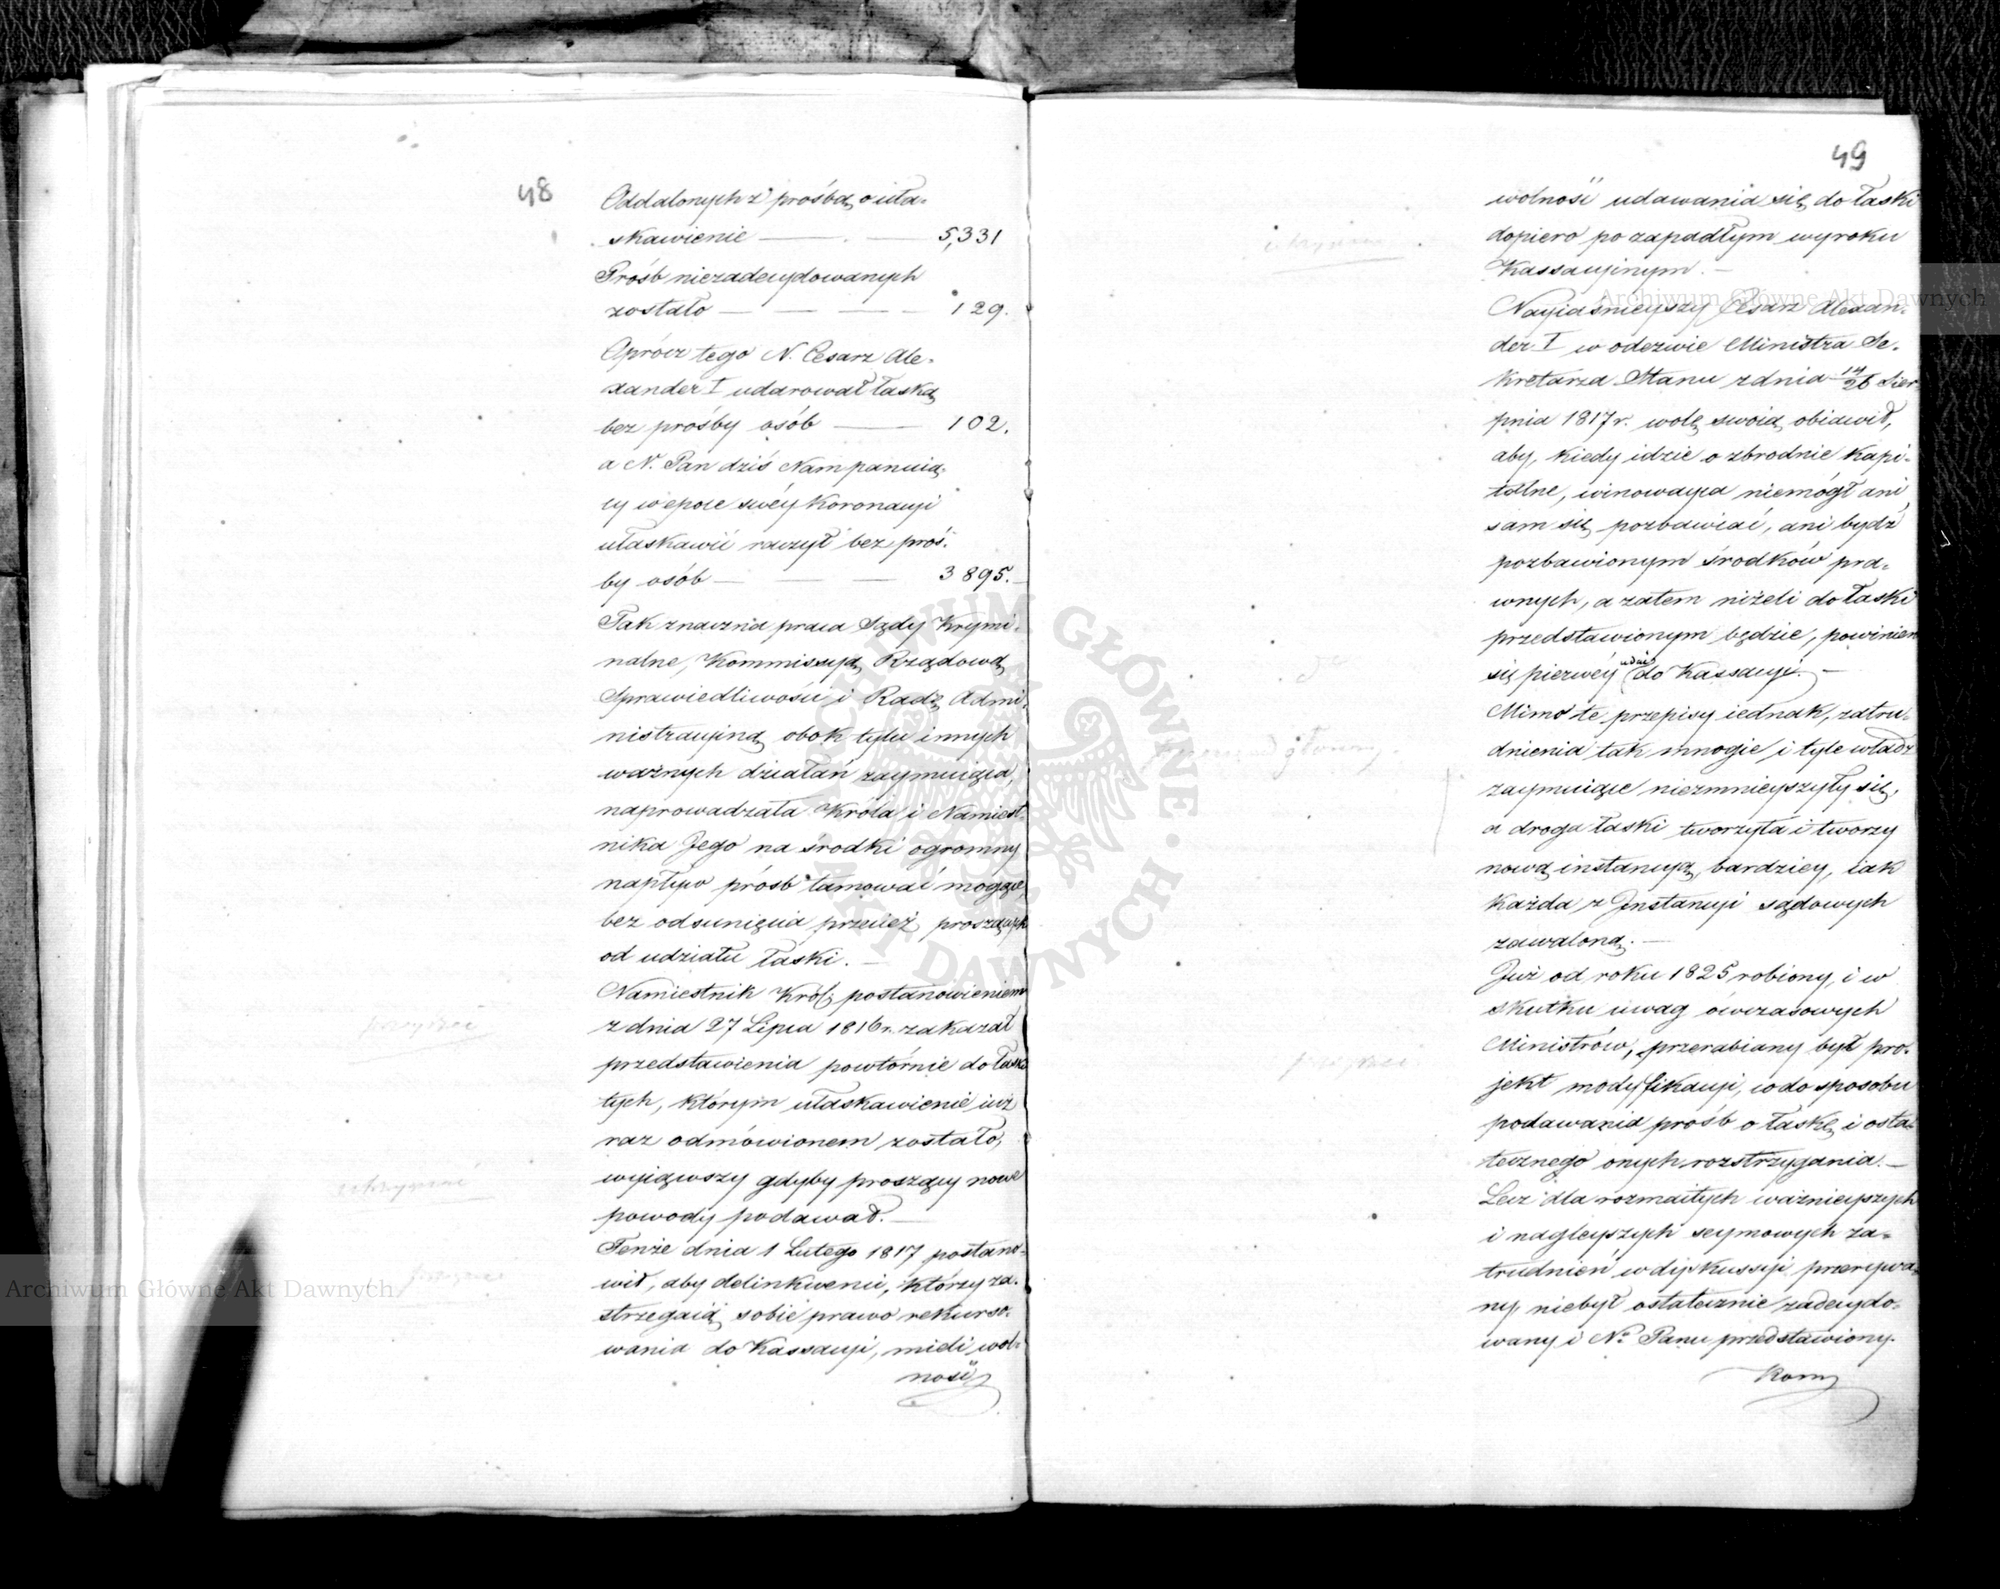 48
Oddalonych z prośbą o uła-
skawienie — — 5,331
Próśb niezadecydowanych
zostało — — — — 129.
Oprócz tego N. Cesarz Ale-
xander I udarował łaską
bez prośby osób — 102.
a N. Pan dziś Nam panuią-
cy w epoce swéy Koronacyi
ułaskawić raczył bez proś-
by osób — — — 3895.
Tak znaczna praca Sądy Krymi-
nalne, Kommissyą Rządową
Sprawiedliwości i Radę Admi-
nistracyiną obok tylu innych
ważnych działań zaymuiąca,
naprowadzała Króla i Namiest-
nika Jego na środki ogromny
napływ próśb tamować mogące,
bez odsunięcia przecież proszących
od udziału łaski. —
Namiestnik Król: postanowieniem
z dnia 27 Lipca 1816 r. zakazał
przedstawienia powtórnie do łaski
tych, którym ułaskawienie iuż
raz odmówionem zostało,
wyiąwszy gdyby proszący nowe
powody podawał. —
Tenże dnia 1 Lutego 1817 postano-
wił, aby delinkwenci, którzy za-
strzegaią sobie prawo rekurso-
wania do Kassacyi, mieli wol-
ność
49
wolność udawania się do łaski
dopiero po zapadłym wyroku
Kassacyinym. —
Nayiaśnieyszy Cesarz Alexan-
der I w odezwie Ministra Se-
kretarza Stanu z dnia 14/26 Sier-
pnia 1817 r. wolę swoią obiawił,
aby, kiedy idzie o zbrodnie kapi-
talne, winowayca niemógł ani
sam się pozbawiać, ani bydź
pozbawionym środków pra-
wnych, a zatem niżeli do łaski
przedstawionym będzie, powinien
się pierwéy udać do Kassacyi. —
Mimo te przepisy iednak, zatru-
dnienia tak mnogie i tyle władz
zaymuiące niezmnieyszyły się,
a droga łaski tworzyła i tworzy
nową instancyą, bardziey, iak
każda z Instancyi sądowych
zawaloną. —
Już od roku 1825 robiony, i w
skutku uwag ówczasowych
Ministrów, przerabiany był pro-
jekt modyfikacyi, w do sposobu
podawania próśb o łaskę i osta-
tecznego onych rozstrzygania. —
Lecz dla rozmaitych ważnieyszych
i nagleyszych seymowych za-
trudnień w dyskussyi przerywa-
ny, niebył ostatecznie zadecydo-
wany i N. Panu przedstawiony.
Archiwum Główne Akt Dawnych
Archiwum Główne Akt Dawnych
ARCHIWUM GŁÓWNE AKT DAWNYCH